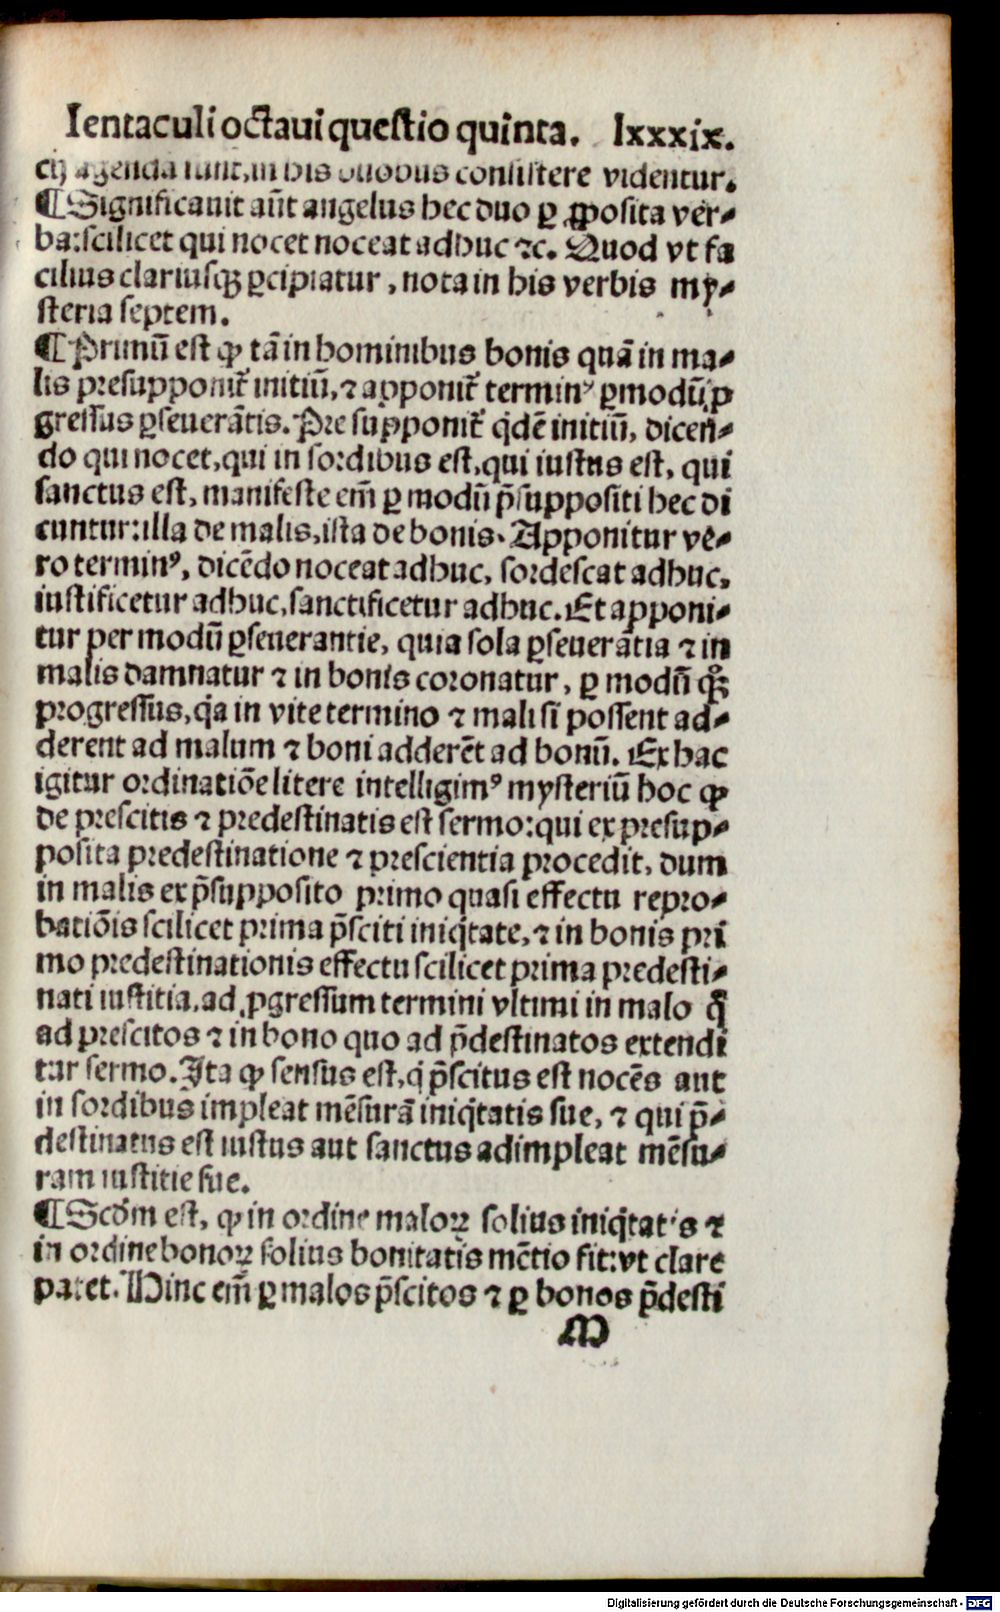 Ientaculi octaui questio quinta. lxxxix.
agenda sunt, in his duobus consistere videntur.
¶Significauit aūt angelus hec duo ꝑ ꝓposita ver⸗
ba:scilicet qui nocet noceat adhuc ⁊c. Quod vt fa
cilius clariusqꝫ ꝑcipiatur, nota in his verbis my⸗
steria septem.
¶Primū est ꝙ tā in hominibus bonis quā in ma⸗
lis presupponit᷑ initiū, ⁊ apponit᷑ terminꝰ ꝑ modū ꝓ
gressus ꝑseuerātis. Pre supponit᷑ qͥdē initiū, dicen⸗
do qui nocet, qui in sordibus est, qui iustus est, qui
sanctus est, manifeste em̄ ꝑ modū p̄suppositi hec di
cuntur: illa de malis, ista de bonis. Apponitur ve⸗
ro terminꝰ, dicēdo noceat adhuc, sordescat adhuc,
iustificetur adhuc, sanctificetur adhuc. Et apponi⸗
tur per modū ꝑseuerantie, quia sola ꝑseuerātia ⁊ in
malis damnatur ⁊ in bonis coronatur, ꝑ modū qͦꝫ
progressus, qͥa in vite termino ⁊ mali si possent ad⸗
derent ad malum ⁊ boni adderēt ad bonū. Ex hac
igitur ordinatiōe litere intelligimꝰ mysteriū hoc ꝙ
de prescitis ⁊ predestinatis est sermo: qui ex presup⸗
posita predestinatione ⁊ prescientia procedit, dum
in malis ex p̄supposito primo quasi effectu repro⸗
batiōis scilicet prima p̄sciti iniqͥtate, ⁊ in bonis pri
mo predestinationis effectu scilicet prima predesti⸗
nati iustitia, ad ꝓgressum termini vltimi in malo qͦ
ad prescitos ⁊ in bono quo ad p̄destinatos extendi
tur sermo. Ita ꝙ sensus est, qͥ p̄scitus est nocēs aut
in sordibus impleat mēsurā iniqͥtatis sue, ⁊ qui p̄⸗
destinatus est iustus aut sanctus adimpleat mēsu⸗
ram iustitie sue.
¶Scd̄m est, ꝙ in ordine maloꝝ solius iniqͥtatis ⁊
in ordine bonoꝝ solius bonitatis mētio fit: vt clare
patet. Hinc em̄ ꝑ malos p̄scitos ⁊ ꝑ bonos p̄desti
M
Digitalisierung gefördert durch die Deutsche Forschungsgemeinschaft - DFG